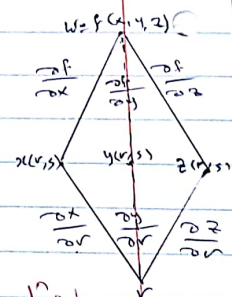 w = f(x, y, z)
∂f/∂x ∂f/∂y ∂f/∂z
x(r,s) y(r,s) z(r,s)
∂x/∂r ∂y/∂r ∂z/∂r
r